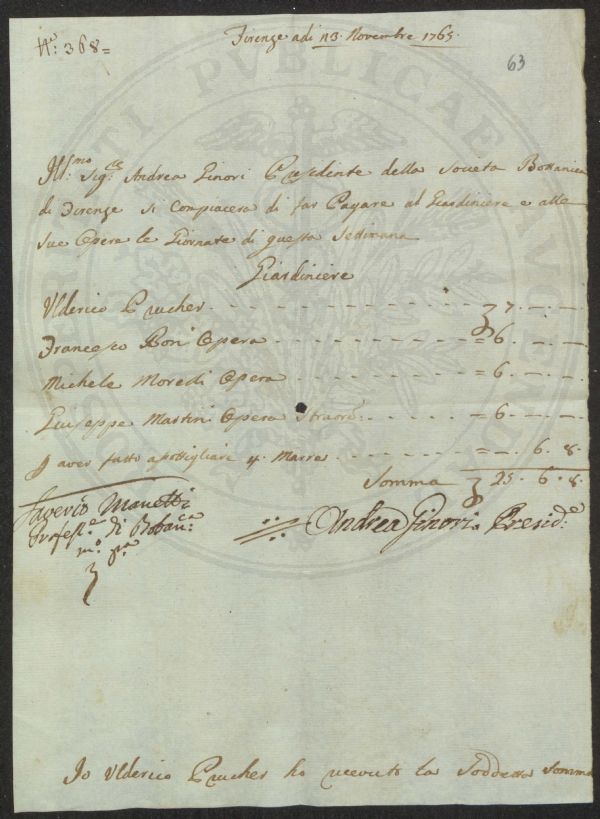 N.o 368=
Firenze adi 23. Novembre 1765.
63
Ill.mo Sig.re Andrea Ginori Presidente della Società Bottanica
di Firenze si compiacerà di far Pagare al Giardiniere e alle
sue Opera le Giornate di questa Setimana
Giardiniere
Ulderico Prucher 7. —. —.
Francesco Boni Opera = 6. —. —.
Michele Moredi Opera = 6. —. —.
Giuseppe Martini Opera Straord: = 6. —. —.
aver fatto 4. Marre = —. 6. 8.
Somma 25. 6. 8.
Saverio Manetti
Profess.e di Botan.ca
m.o pa
Andrea Ginori Presid.e
Io Ulderico Prucher ho riceuto la Soddetta Somma
SOCIETATI PUBLICAE